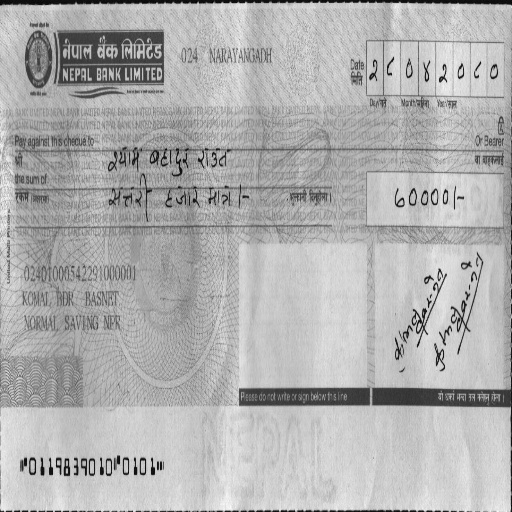 नेपाल बैंक लिमिटेड
NEPAL BANK LIMITED
024 NARAYANGADH
Date
मिति
२८०४२०८०
Day/गते Month/महिना Year/साल
Pay against this cheque to
Or Bearer
श्री श्याम बहादुर राउत वा वाहकलाई
the sum of
रकम (अक्षरमा) सत्तरी हजार मात्र ।-
60000/-
02401000542291000001
KOMAL BDR BASNET
NORMAL SAVING NPR
Please do not write or sign below this line
⑈0119839010⑈0101⑈